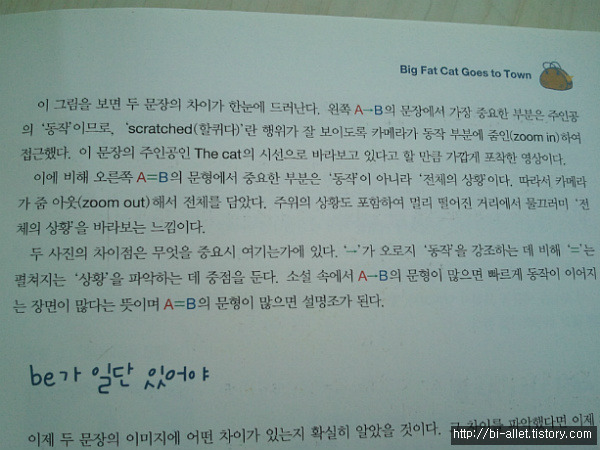 Big Fat Cat Goes to Town
이 그림을 보면 두 문장의 차이가 한눈에 드러난다. 왼쪽 A→B의 문장에서 가장 중요한 부분은 주인공
의 ‘동작’이므로, ‘scratched(할퀴다)’란 행위가 잘 보이도록 카메라가 동작 부분에 줌인(zoom in)하여
접근했다. 이 문장의 주인공인 The cat의 시선으로 바라보고 있다고 할 만큼 가깝게 포착한 영상이다.
이에 비해 오른쪽 A=B의 문형에서 중요한 부분은 ‘동작’이 아니라 ‘전체의 상황’이다. 따라서 카메라
가 줌 아웃(zoom out)해서 전체를 담았다. 주위의 상황도 포함하여 멀리 떨어진 거리에서 물끄러미 ‘전
체의 상황’을 바라보는 느낌이다.
두 사진의 차이점은 무엇을 중요시 여기는가에 있다. ‘→’가 오로지 ‘동작’을 강조하는 데 비해 ‘=’는
펼쳐지는 ‘상황’을 파악하는 데 중점을 둔다. 소설 속에서 A→B의 문형이 많으면 빠르게 동작이 이어지
는 장면이 많다는 뜻이며 A=B의 문형이 많으면 설명조가 된다.
be가 일단 있어야
이제 두 문장의 이미지에 어떤 차이가 있는지 확실히 알았을 것이다. 그 차이를 파악했다면 이제
http://bi-allet.tistory.com